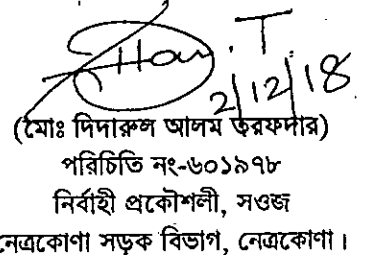 2/12/18
(মোঃ দিদারুল আলম তরফদার)
পরিচিতি নং-৬০১৯৭৮
নির্বাহী প্রকৌশলী, সওজ
নেত্রকোণা সড়ক বিভাগ, নেত্রকোণা।